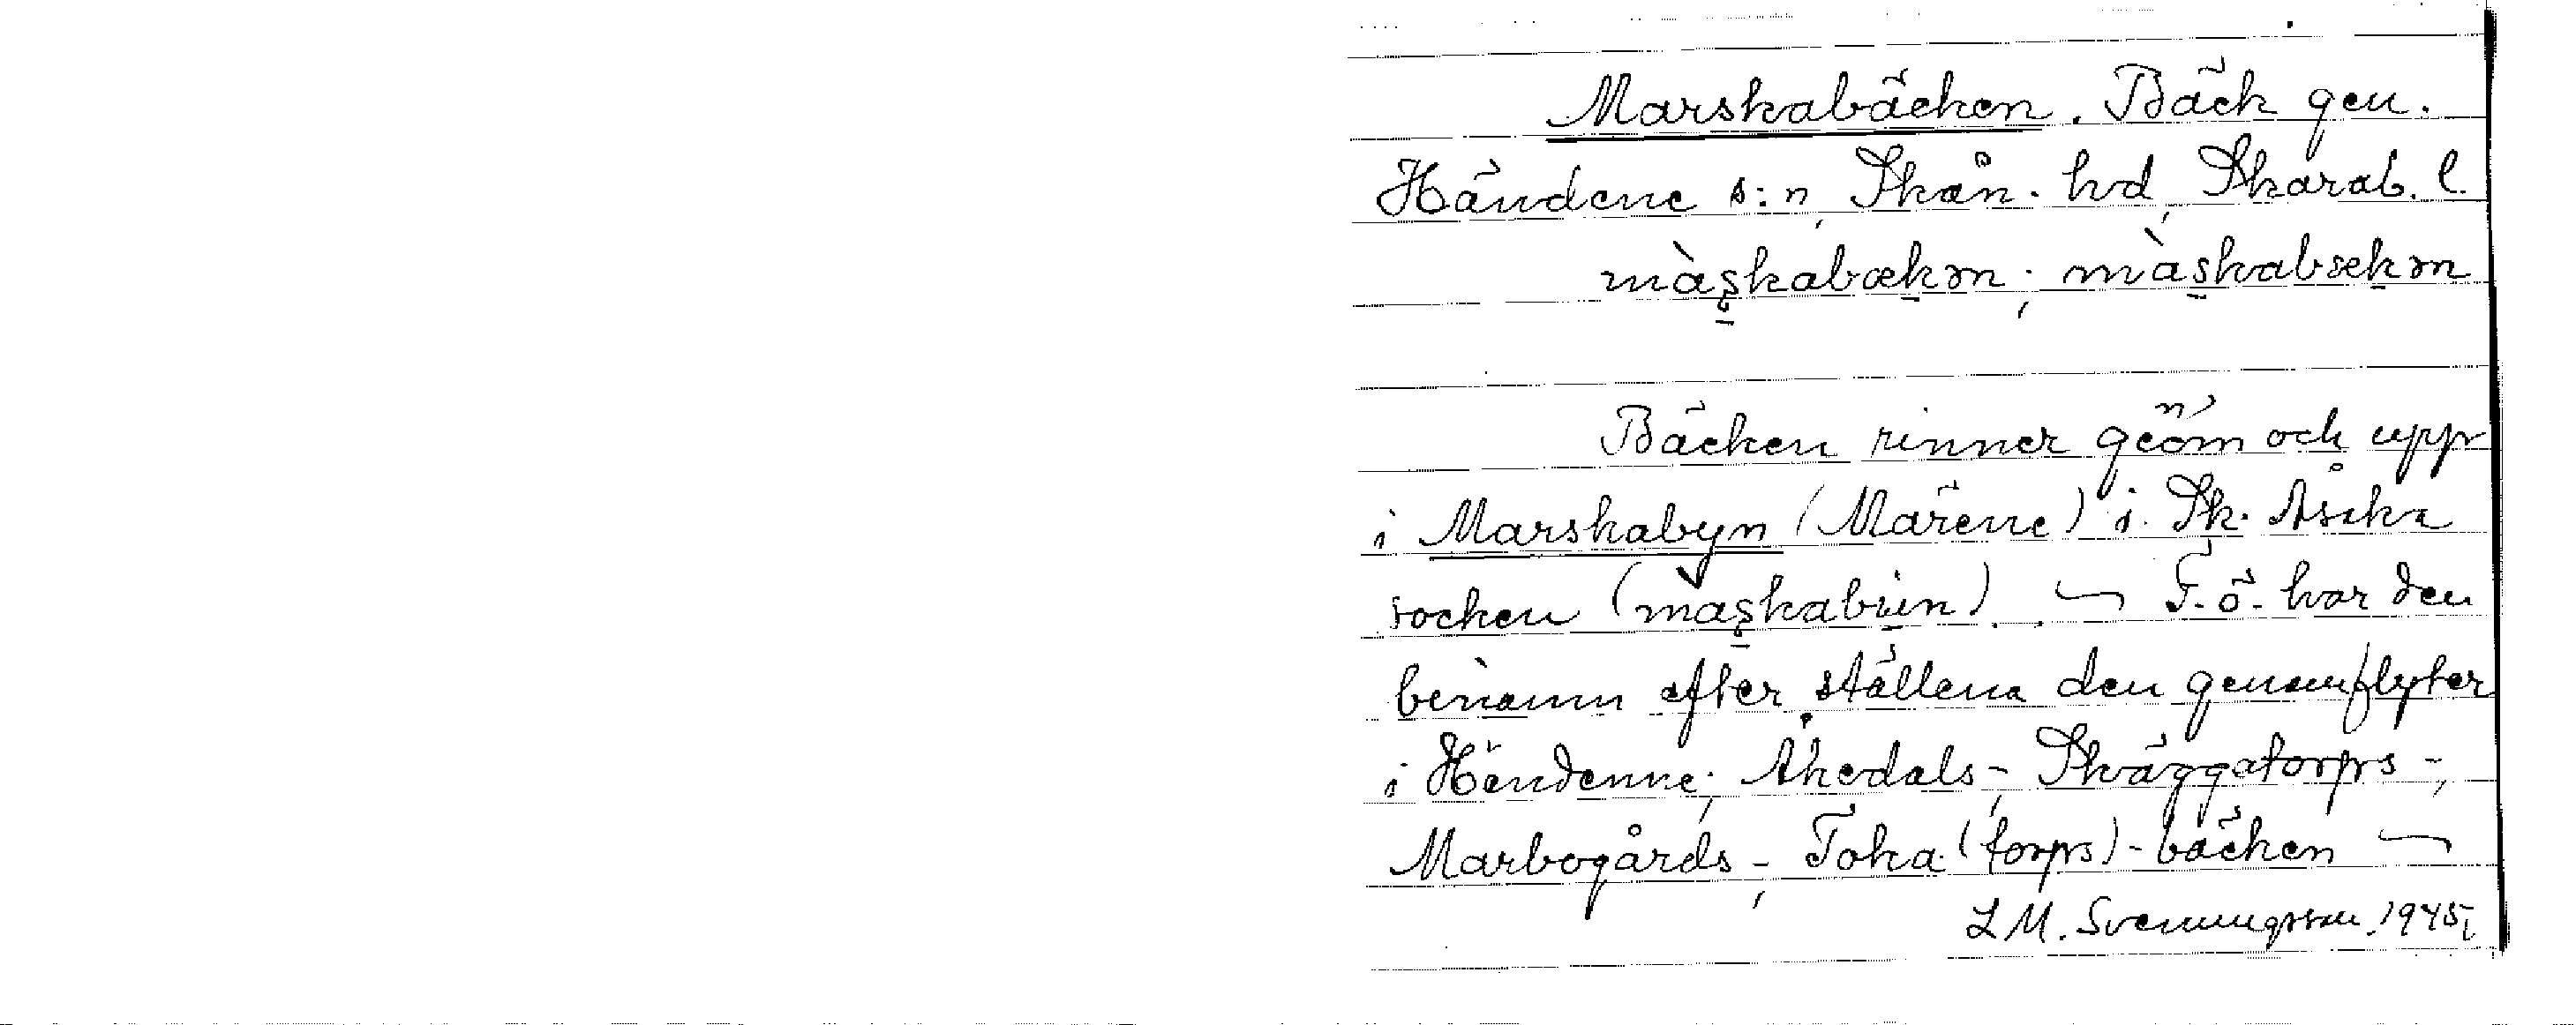 Marskabäcken. Bäck gen.
Händene s:n, Skån. hd, Skarab. l.
màskabækən; màskabækən
Bäcken rinner genöm och upp
i Marskabyn (Märene) i Sk. Åsaka
socken (màskabün). — F. ö. har den
binamn efter ställena den genomflyter
i Händenne; Åkedals-, Skäggatorps-,
Marbogårds-, Toka(torps)-bäcken —
L M. Svenungsson. 1945.